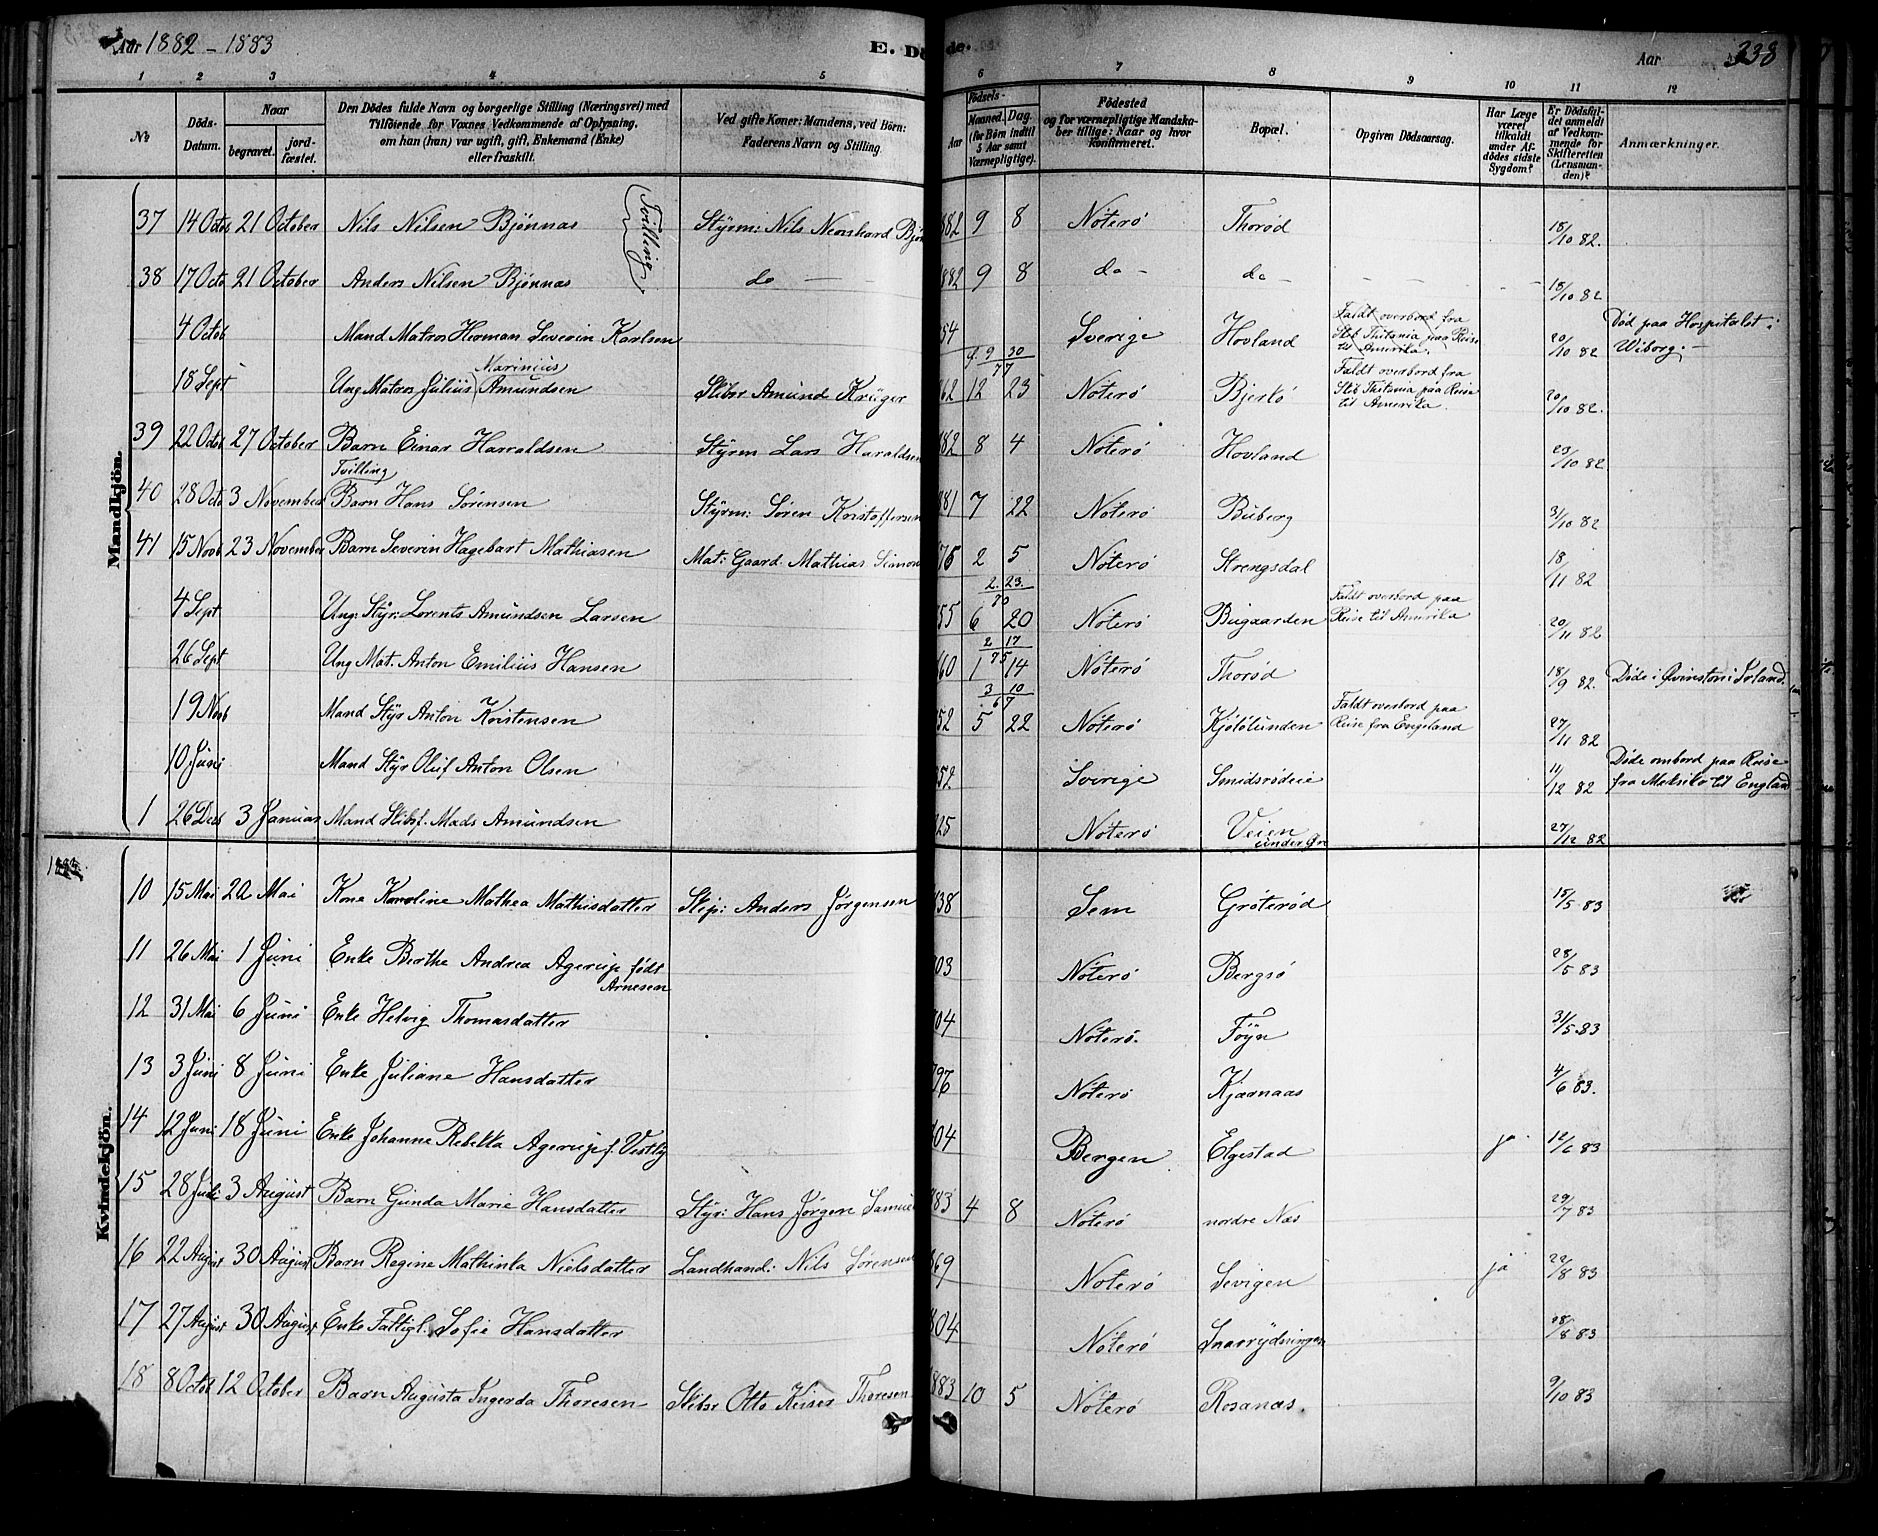 Aar 1882 - 1883
E. Dö de.
Aar 338
1 2 3 4 5 6 7 8 9 10 11 12
No
Döds-Datum.
Naar
begravet.
jord-fæstet.
Den Dödes fulde Navn og borgerlige Stilling (Næringsvei) med
Tilföiende for Voxnes Vedkommende af Oplysning,
om han (hun) var ugift, gift, Enkemand (Enke)
eller fraskilt.
Ved gifte Koner: Mandens, ved Börn:
Faderens Navn og Stilling
Födsels-
Aar
Maaned. Dag.
(for Börn indtil
5 Aar samt
Værnepligtige).
Födested
og for værnepligtige Mandska-
ber tillige: Naar og hvor
konfirmeret.
Bopæl.
Opgiven Dödsaarsag.
Har Læge
været
tilkaldt
under Af-
dödes sidste
Sygdom?
Er Dödsfal-
det anmeldt
af Vedkom-
mende for
Skifteretten
(Lensman-
den)?
Anmærkninger.
Mandkjön.
37 14 Octob 21 October Nils Nilsen Bjönnæs Tvilling Styrm: Nils Neonhard Bjön 882 9 8 Nöterö Thorød 18/10 82.
38 17 Octo 21 October Anders Nilsen Bjönnæs do — 1882 9 8 do - do - - - - 18/10 82
4 Octob Mand Matros Herman Severin Karlsen 54 Sverige Hovland Faldt overbord fra Skb Thitania paa Reise til Amerika. 20/10 82 Død paa Hospitalet i Wiborg. —
f. 9 30/77
18 Sept Ung Matros Julius Marinius Amundsen Skibsr Amund Krüger 62 12 23 Nöterö Bjerkö Faldt overbord fra Skb Thitania paa Reise til Amerika. 20/10 82.
39 22 Octob 27 October Barn Einar Harraldsen Styrm Lars Haraldsen 882 8 4 Nöterö Hovland 23/10 82
Tvilling
40 28 Octo 3 November Barn Hans Sörensen Styrm: Sören Kristoffersen 881 7 22 Nöterö Buberg 31/10 82
41 15 Novb 23 November Barn Severin Hagebart Mathiasen Mat: Gaard. Mathias Simon 76 2 5 Nöterö Strengsdal 18/11 82
2. 23./70
4 Sept Ung: Styr: Lorents Amundsen Larsen 55 6 20 Nöterö Bugaarden Faldt overbord paa Reise til Amerika 20/11 82
2 17/75
26 Sept Ung Mat. Anton Emilius Hansen 60 1 14 Nöterö Thorød 18/9 82. Døde i Qvinston i Irland.
3 10/67
19 Novb Mand Styr Anton Kristensen 52 5 22 Nöterö Kjölölunden Faldt overbord paa Reise fra Engeland 27/11 82
10 Juni Mand Styr Oluf Anton Olsen 52. Sverige Smidsrødeie 11/12 82 Døde ombord paa Reise fra Meksiko til England
1 26 Deb 3 Januar Mand Skibsf. Mads Amundsen 25 Nöterö Veien under Ør 27/12 82
1883.
Kvindekjön.
10 15 Mai 20 Mai Kone Karoline Mathea Mathisdatter Skip: Anders Jørgensen 38 Sem Gröterød 15/5 83
11 26 Mai 1 Juni Enke Berthe Andrea Agerup født Arnesen 03 Nöterö Bergsö 28/5 83
12 31 Mai 6 Juni Enke Helvig Thomasdatter 04 Nöterö. Föyn 31/5 83
13 3 Juni 8 Juni Enke Juliane Hansdatter 96 Nöterö Kjærnaas 4/6 83.
14 12 Juni 18 Juni Enke Johanne Rebekka Agerup f. Vestby 04 Bergen Elgestad ja 12/6 83
15 28 Juli 3 August Barn Gunda Marie Hansdatter Styr: Hans Jørgen Samuel 83 4 8 Nöterö nordre Næs 29/7 83
16 22 August 30 August Barn Regine Mathinka Nielsdatter Landhand: Nils Sørensen 69 Nöterö Sevigen ja 22/8 83
17 27 August 30 August Enke Fattigl. Sofie Hansdatter 804 Nöterö Snarrydningen 28/8 83
18 8 Octob 12 October Barn Augusta Ingerda Thoresen Skibsr Otto Keiser Thoresen 883 10 5 Nöterö Rosanæs. 9/10 83